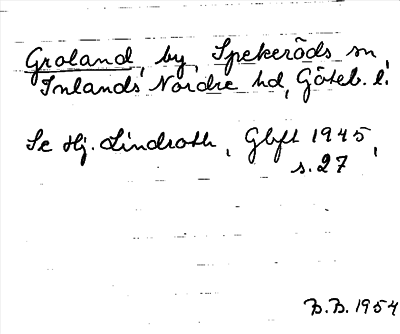 Groland, by, Spekeröds sn,
Inlands Nordre hd, Göteb. l.
Se Hj. Lindroth, Gbft 1945,
s. 27
B.B. 1954